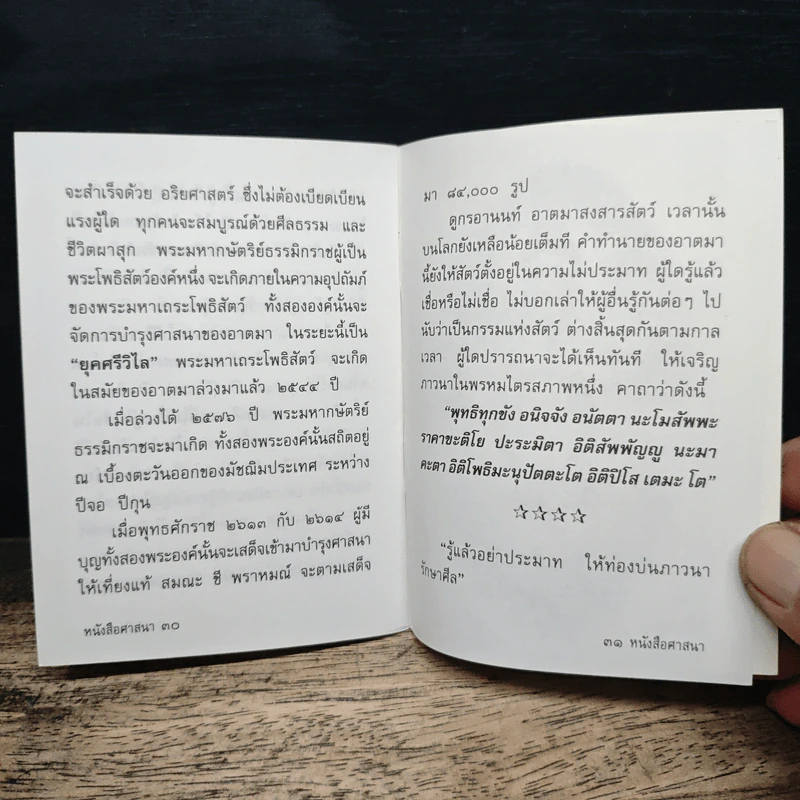 จะสำเร็จด้วย อริยศาสตร์ ซึ่งไม่ต้องเบียดเบียน
แรงผู้ใด ทุกคนจะสมบูรณ์ด้วยศีลธรรม และ
ชีวิตผาสุก พระมหากษัตริย์ธรรมิกราชผู้เป็น
พระโพธิสัตว์องค์หนึ่ง จะเกิดภายในความอุปถัมภ์
ของพระมหาเถระโพธิสัตว์ ทั้งสององค์นั้นจะ
จัดการบำรุงศาสนาของอาตมา ในระยะนี้เป็น
“ยุคศรีวิไล” พระมหาเถระโพธิสัตว์ จะเกิด
ในสมัยของอาตมาล่วงมาแล้ว ๒๕๔๔ ปี
เมื่อล่วงได้ ๒๕๗๖ ปี พระมหากษัตริย์
ธรรมิกราชจะมาเกิด ทั้งสองพระองค์นั้นสถิตอยู่
ณ เบื้องตะวันออกของมัชฌิมประเทศ ระหว่าง
ปีจอ ปีกุน
เมื่อพุทธศักราช ๒๖๑๓ กับ ๒๖๑๔ ผู้มี
บุญทั้งสองพระองค์นั้นจะเสด็จเข้ามาบำรุงศาสนา
ให้เที่ยงแท้ สมณะ ชี พราหมณ์ จะตามเสด็จ
หนังสือศาสนา ๓๐
มา ๘๔,๐๐๐ รูป
ดูกรอานนท์ อาตมาสงสารสัตว์ เวลานั้น
บนโลกยังเหลือน้อยเต็มที คำทำนายของอาตมา
นี้ยังให้สัตว์ตั้งอยู่ในความไม่ประมาท ผู้ใดรู้แล้ว
เชื่อหรือไม่เชื่อ ไม่บอกเล่าให้ผู้อื่นรู้กันต่อๆ ไป
นับว่าเป็นกรรมแห่งสัตว์ ต่างสิ้นสุดกันตามกาล
เวลา ผู้ใดปรารถนาจะได้เห็นทันที ให้เจริญ
ภาวนาในพรหมไตรสภาพหนึ่ง คาถาว่าดังนี้
“พุทธิทุกขัง อนิจจัง อนัตตา นะโมสัพพะ
ราคาขะติโย ปะระมิตา อิติสัพพัญญู นะมา
คะตา อิติโพธิมะนุปัตตะโต อิติปิโส เตมะ โต”
☆☆☆☆
“รู้แล้วอย่าประมาท ให้ท่องบ่นภาวนา
รักษาศีล”
๓๑ หนังสือศาสนา